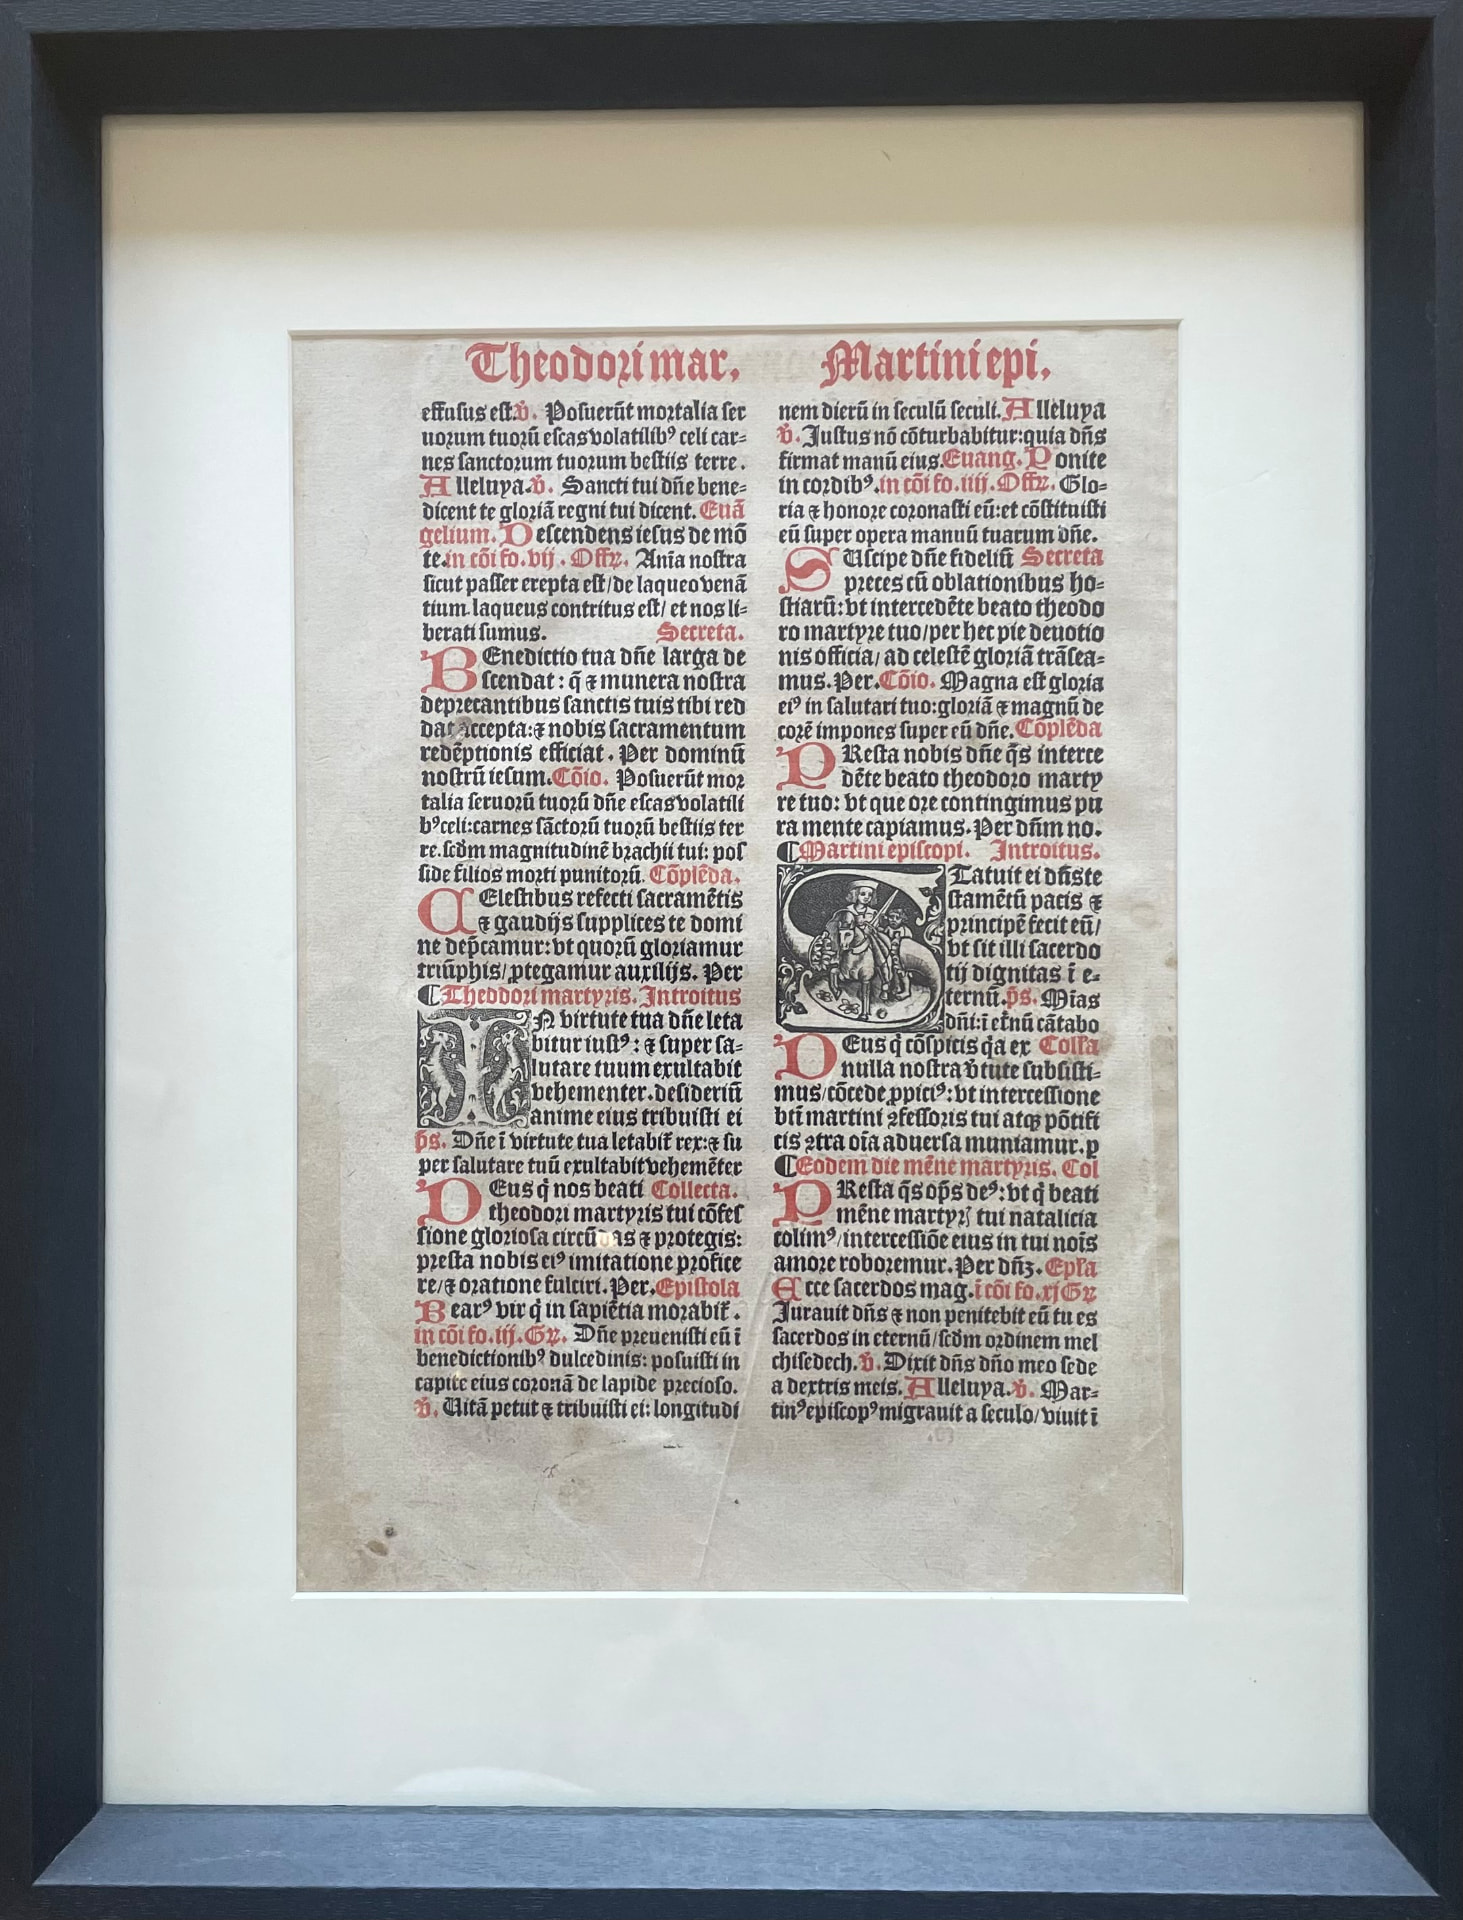 Theodori mar. Martini epi.
effusus est. v̄. Posuerūt mortalia ser
uorum tuorū escas volatilibꝰ celi car=
nes sanctorum tuorum bestiis terre.
Alleluya. v̄. Sancti tui dn̄e bene=
dicent te gloriā regni tui dicent. Euā
gelium. Descendens iesus de mō
te. in cōi fo. vij. Offꝝ. Anīa nostra
sicut passer erepta est/de laqueo venā
tium. laqueus contritus est/ et nos li=
berati sumus. Secreta.
BEnedictio tua dn̄e larga de
scendat: q̄ ⁊ munera nostra
deprecantibus sanctis tuis tibi red
dat accepta: ⁊ nobis sacramentum
redēptionis efficiat. Per dominū
nostrū iesum. Cōio. Posuerūt mor
talia seruorū tuorū dn̄e escas volatili
bꝰ celi: carnes sāctorū tuorū bestiis ter
re. scdm̄ magnitudinē brachii tui: pos
side filios morti punitorū. Cōplēda.
CElestibus refecti sacramētis
⁊ gaudijs supplices te domi
ne dep̄camur: vt quorū gloriamur
triūphis/ ꝓtegamur auxilijs. Per
¶Theodori martyris. Introitus
IN virtute tua dn̄e leta
bitur iustꝰ: ⁊ super sa=
lutare tuum exultabit
vehementer. desideriū
anime eius tribuisti ei
p̄s. Dn̄e ī virtute tua letabit̄ rex: ⁊ su
per salutare tuū exultabit vehemēter
DEus q̄ nos beati Collecta.
theodori martyris tui cōfes
sione gloriosa circūdas ⁊ protegis:
presta nobis eiꝰ imitatione profice
re/ ⁊ oratione fulciri. Per. Epistola
Beatꝰ vir q̄ in sapiētia morabit̄.
in cōi fo. iij. Gꝝ. Dn̄e preuenisti eū ī
benedictionibꝰ dulcedinis: posuisti in
capite eius coronā de lapide precioso.
v̄. Uitā petiit ⁊ tribuisti ei: longitudi
nem dierū in seculū seculi. Alleluya
v̄. Justus nō cōturbabitur: quia dn̄s
firmat manū eius. Euang. Ponite
in cordibꝰ. in cōi fo. iiij. Offꝝ. Glo=
ria ⁊ honore coronasti eū: et cōstituisti
eū super opera manuū tuarum dn̄e.
SUscipe dn̄e fideliū Secreta
preces cū oblationibus ho=
stiarū: vt intercedēte beato theodo
ro martyre tuo/per hec pie deuotio
nis officia/ ad celestē gloriā trāsea=
mus. Per. Cōio. Magna est gloria
eiꝰ in salutari tuo: gloriā ⁊ magnū de
corē impones super eū dn̄e. Cōplēda
PResta nobis dn̄e q̄s interce
dēte beato theodoro marty
re tuo: vt que ore contingimus pu
ra mente capiamus. Per dn̄m no.
¶Martini episcopi. Introitus.
STatuit ei dn̄s te
stamētū pacis ⁊
principē fecit eū/
vt sit illi sacerdo
tij dignitas ī e=
ternū. p̄s. Mīas
dn̄i: ī et̄nū cātabo
DEus q̄ cōspicis q̄a ex Coll̄a
nulla nostra v̄tute subsisti=
mus/ cōcede ꝓpiciꝰ: vt intercessione
bt̄i martini ꝯfessoris tui atqꝫ pōtifi
cis ꝯtra oīa aduersa muniamur. ꝑ
¶Eodem die mēne martyris. Col
PResta q̄s op̄s deꝰ: vt q̄ beati
mēne martyrꝭ tui natalicia
colimꝰ/ intercessiōe eius in tui noīs
amore roboremur. Per dn̄ꝫ. Epl̄a
Ecce sacerdos mag. ī cōi fo. xj Gꝝ
Jurauit dn̄s ⁊ non penitebit eū tu es
sacerdos in eternū/ scdm̄ ordinem mel
chisedech. v̄. Dixit dn̄s dn̄o meo sede
a dextris meis. Alleluya. v̄. Mar=
tinꝰ episcopꝰ migrauit a seculo/ viuit ī